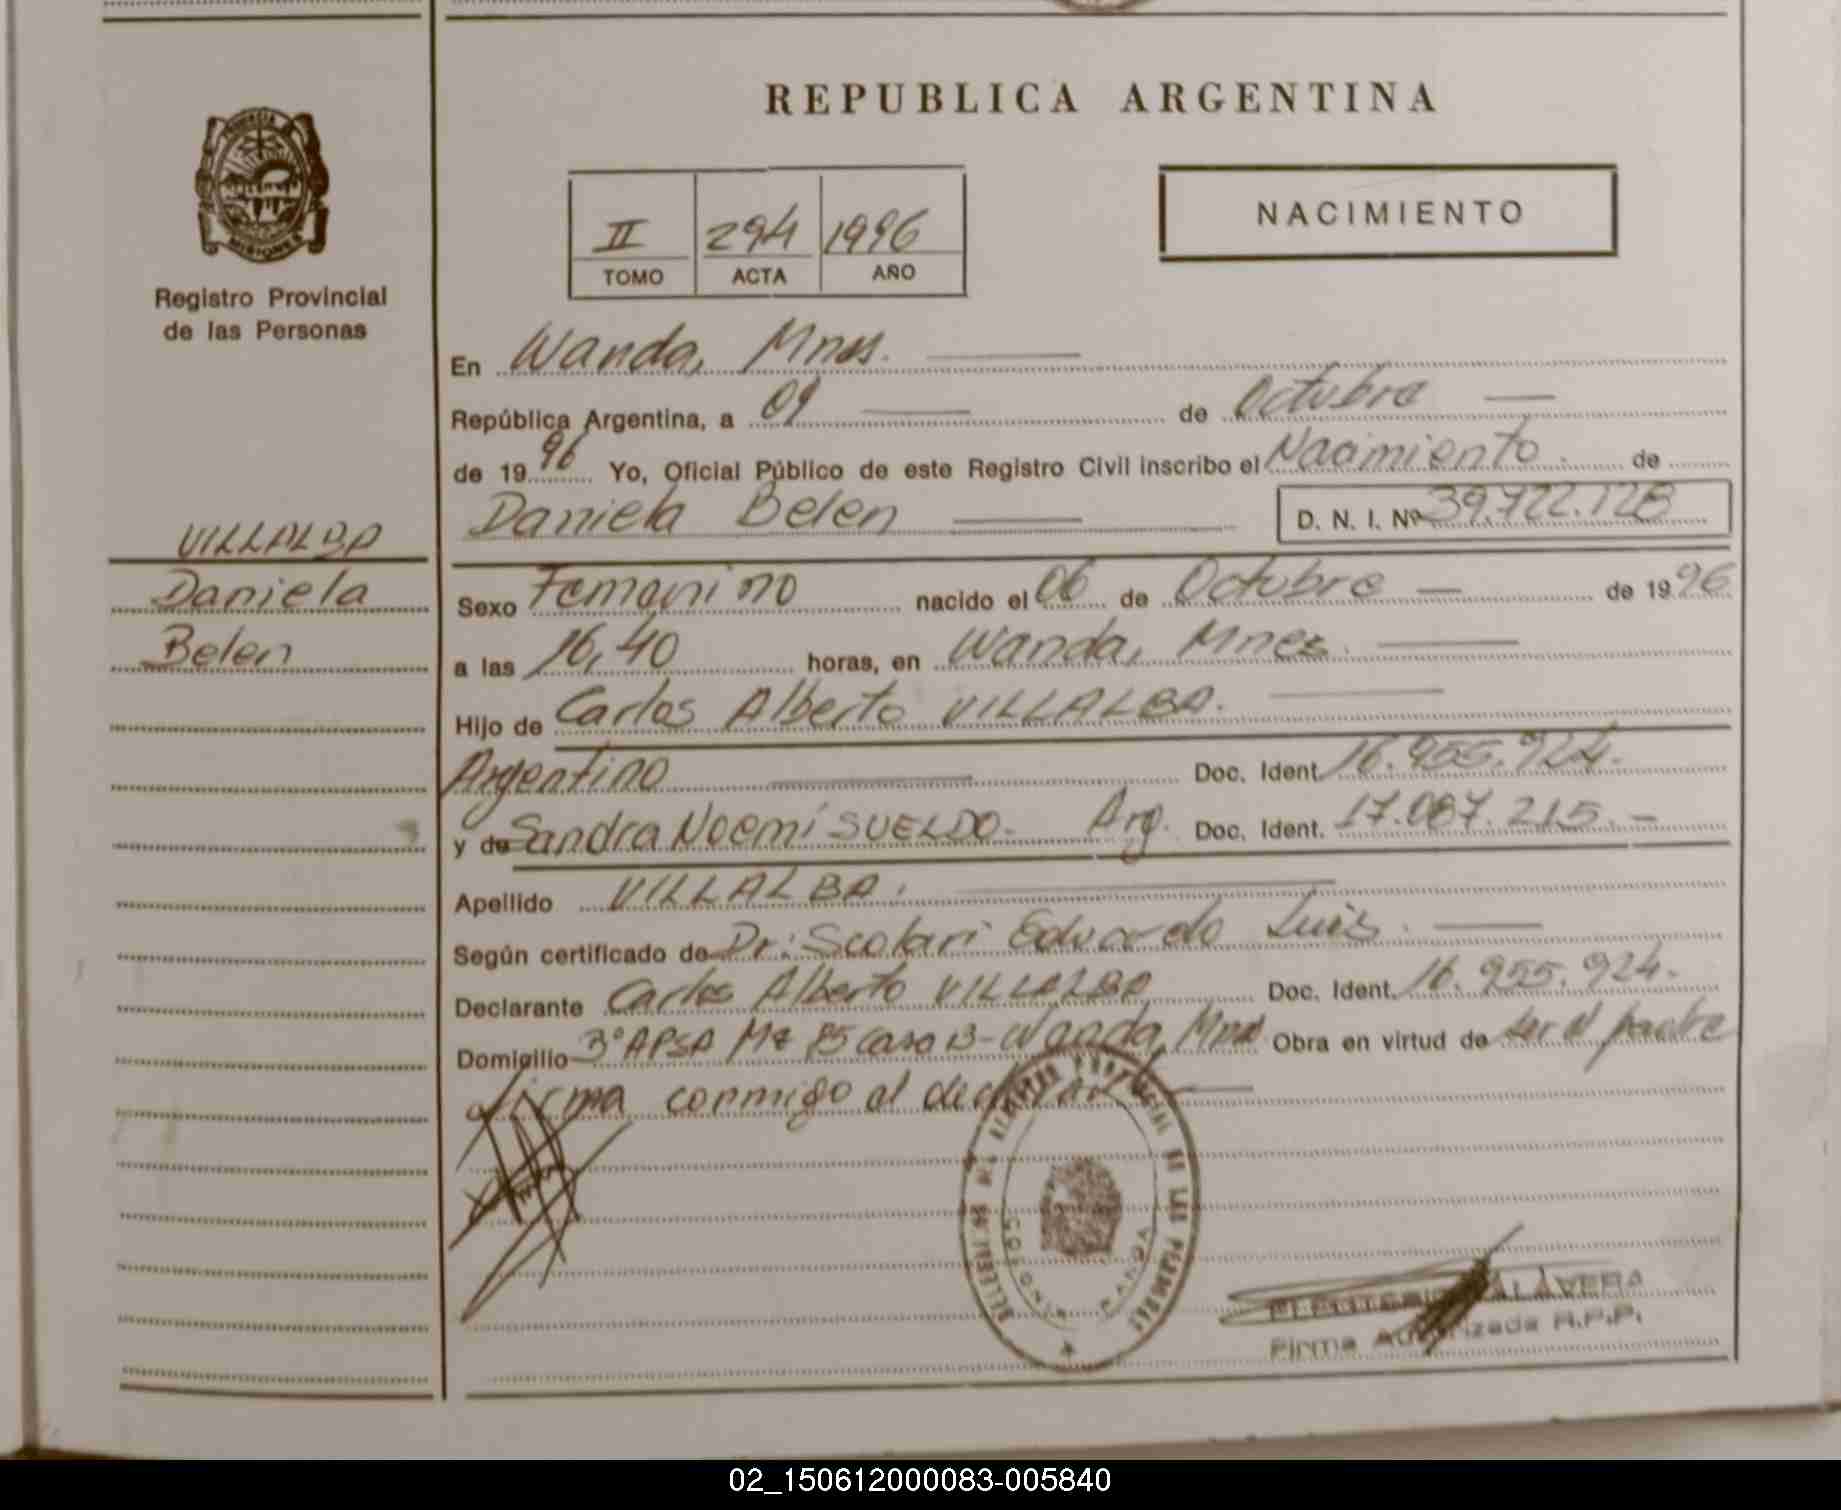 REPUBLICA ARGENTINA
PROVINCIA
MISIONES
Registro Provincial
de las Personas
II 294 1996
TOMO ACTA AÑO
NACIMIENTO
En Wanda, Mnes.
República Argentina, a 09 de Octubre
de 1996 Yo, Oficial Público de este Registro Civil inscribo el Nacimiento de
Daniela Belen D. N. I. Nº 39.722.128
VILLALBA
Daniela
Belen
Sexo Femenino nacido el 06 de Octubre de 1996
a las 16,40 horas, en Wanda, Mnes.
Hijo de Carlos Alberto VILLALBA.
Argentino Doc. Ident. 16.955.924.
y de Sandra Noemi SUELDO. Arg. Doc. Ident. 17.087.215.-
Apellido VILLALBA.
Según certificado de Dr: Scolari Eduardo Luis.
Declarante Carlos Alberto VILLALBA Doc. Ident. 16.955.924.
Domicilio 3º APSA Mz 85 Casa 13 - Wanda, Mnes Obra en virtud de ser el padre
firma conmigo el declarante
DEL REGISTRO PROVINCIAL DE LAS PERSONAS
WANDA
ELEUTERIO TALAVERA
Firma Autorizada R.P.P.
02_150612000083-005840